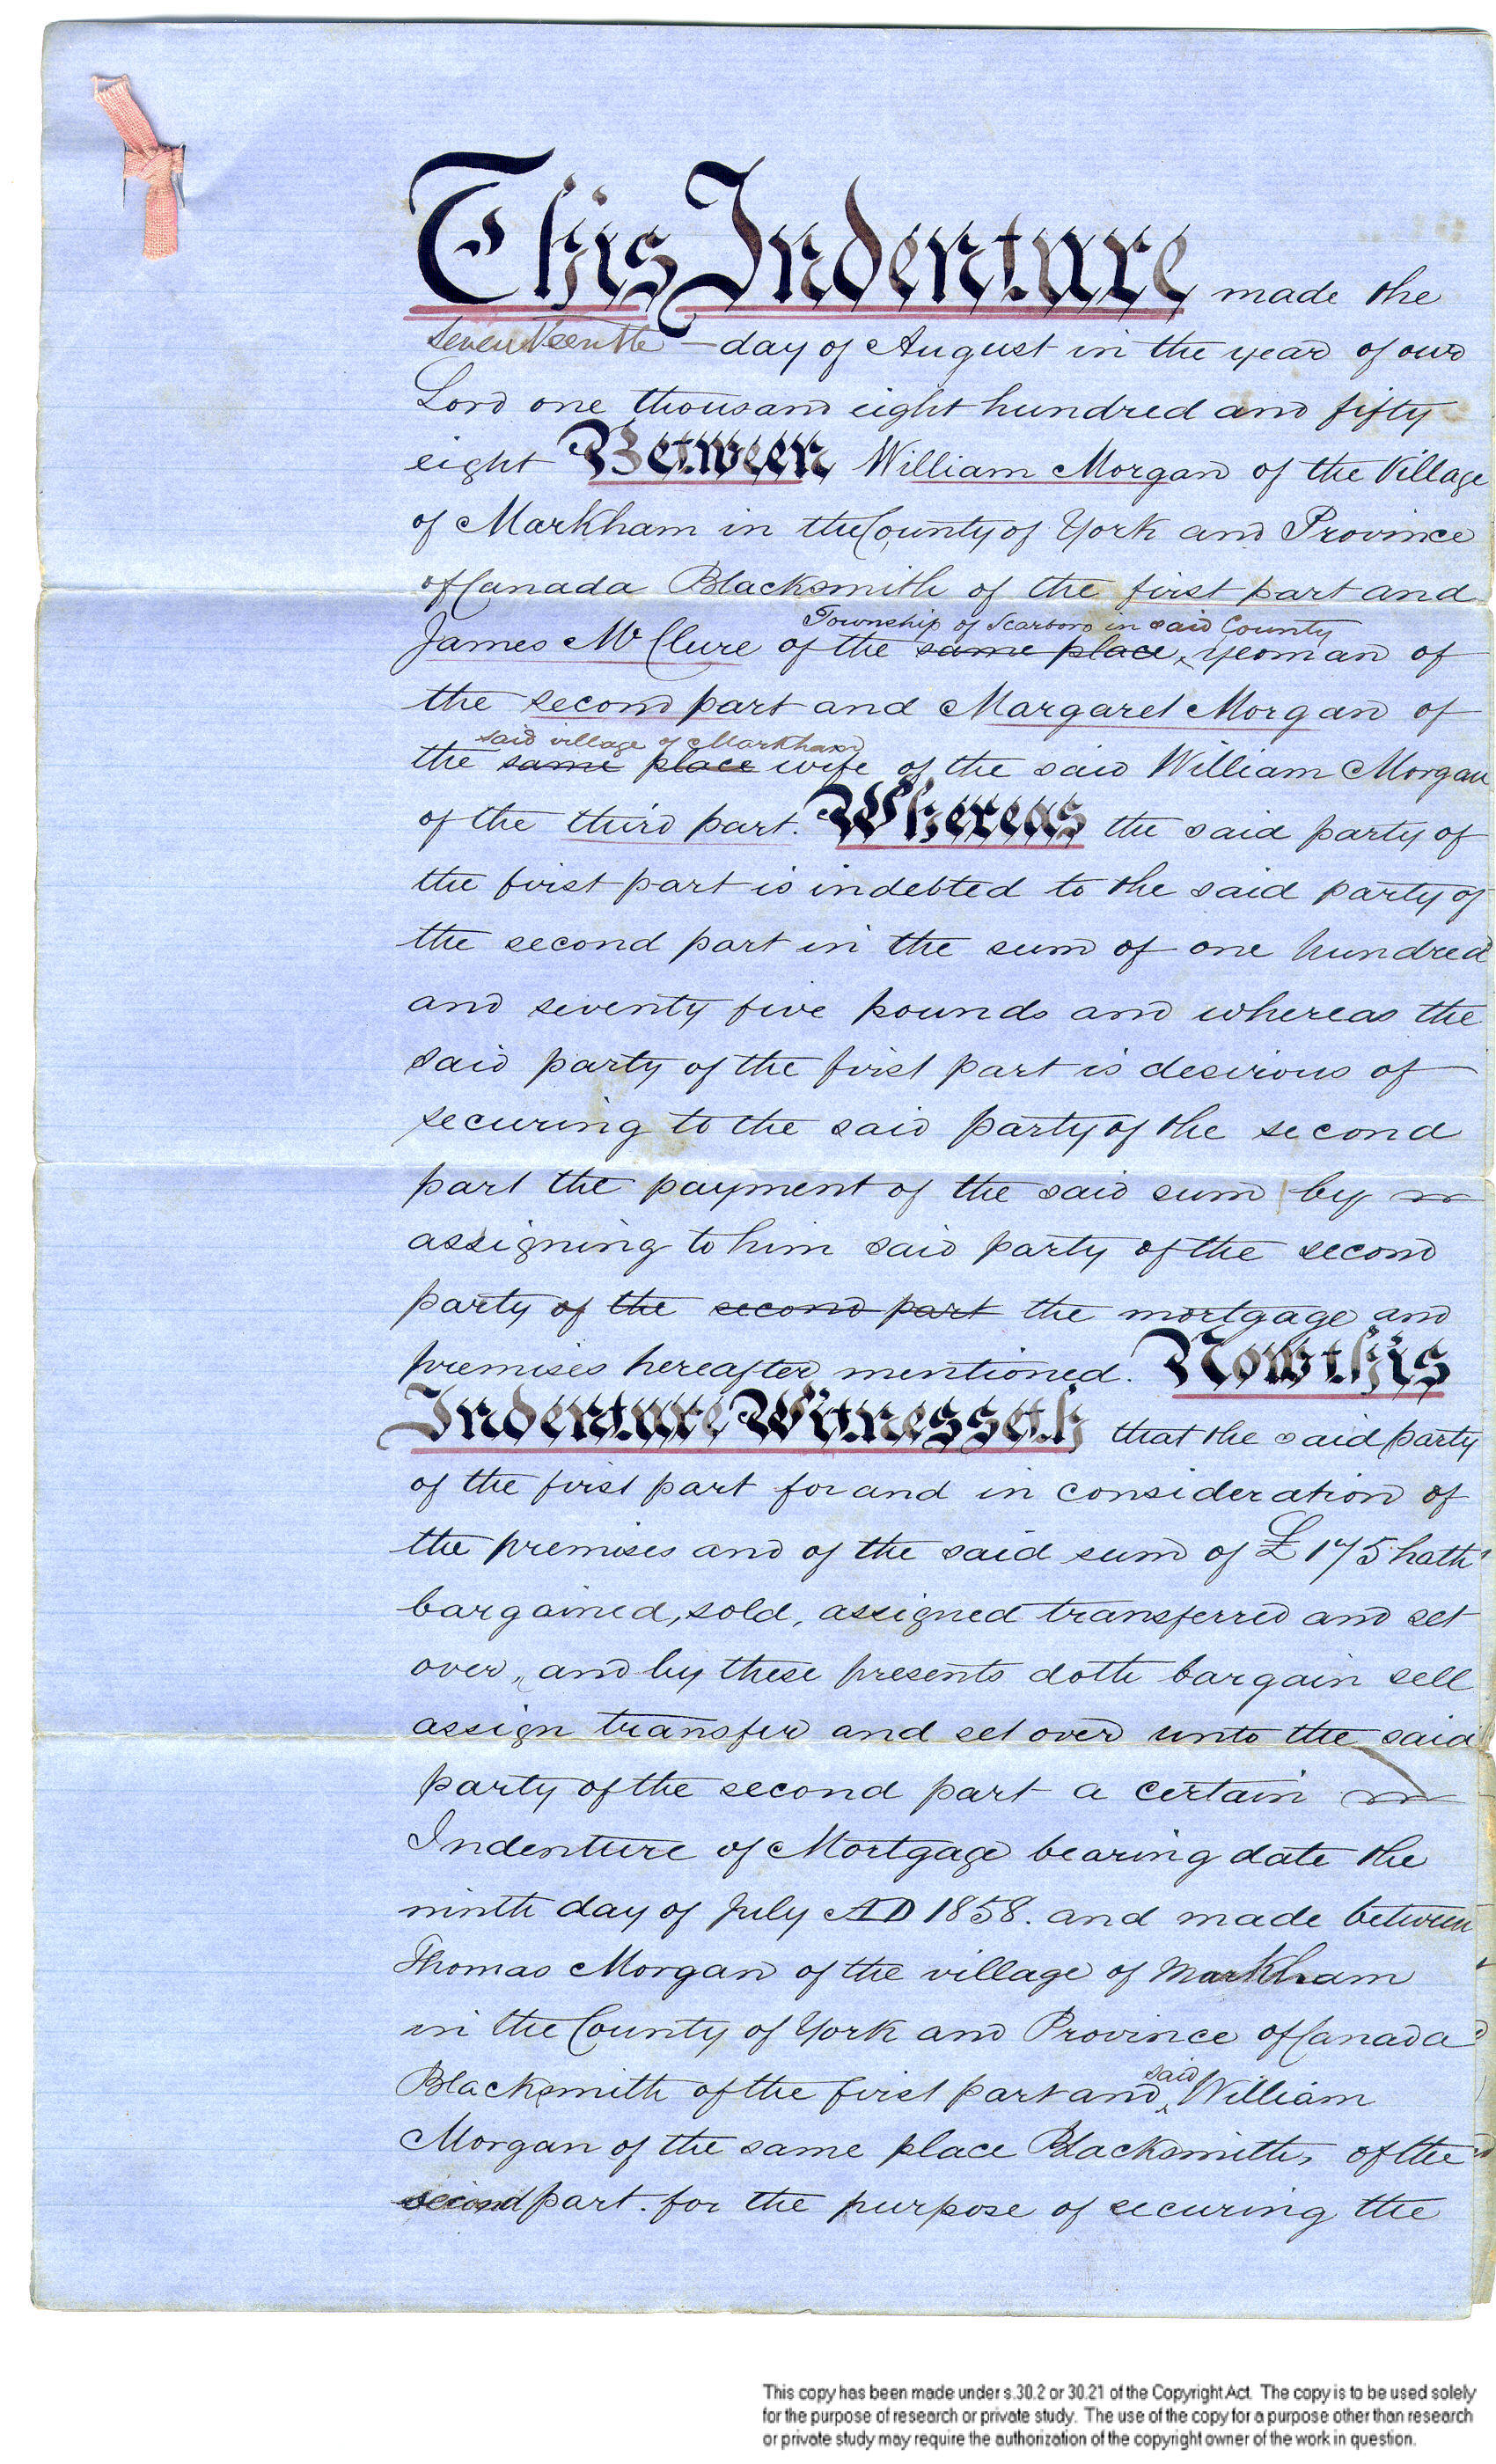 This Indenture made the
seventeenth — day of August in the year of our
Lord one thousand eight hundred and fifty
eight Between William Morgan of the Village
of Markham in the County of York and Province
of Canada Blacksmith of the first part and
Township of Scarboro in said County
James McClure of the same place, yeoman of
the second part and Margaret Morgan of
said village of Markham
the same place wife of the said William Morgan
of the third part. Whereas the said party of
the first part is indebted to the said party of
the second part in the sum of one hundred
and seventy five pounds and whereas the
said party of the first part is desirous of
securing to the said party of the second
part the payment of the said sum by
assigning to him said party of the second
party of the second part the mortgage and
premises hereafter mentioned. Now this
Indenture Witnesseth that the said party
of the first part for and in consideration of
the premises and of the said sum of £175 hath
bargained, sold, assigned transferred and set
over, and by these presents doth bargain sell
assign transfer and set over unto the said
party of the second part a certain
Indenture of Mortgage bearing date the
ninth day of July AD 1858. and made between
Thomas Morgan of the village of Markham
in the County of York and Province of Canada
said
Blacksmith of the first part and William
Morgan of the same place Blacksmith, of the
second part. for the purpose of securing the
This copy has been made under s.30.2 or 30.21 of the Copyright Act. The copy is to be used solely
for the purpose of research or private study. The use of the copy for a purpose other than research
or private study may require the authorization of the copyright owner of the work in question.